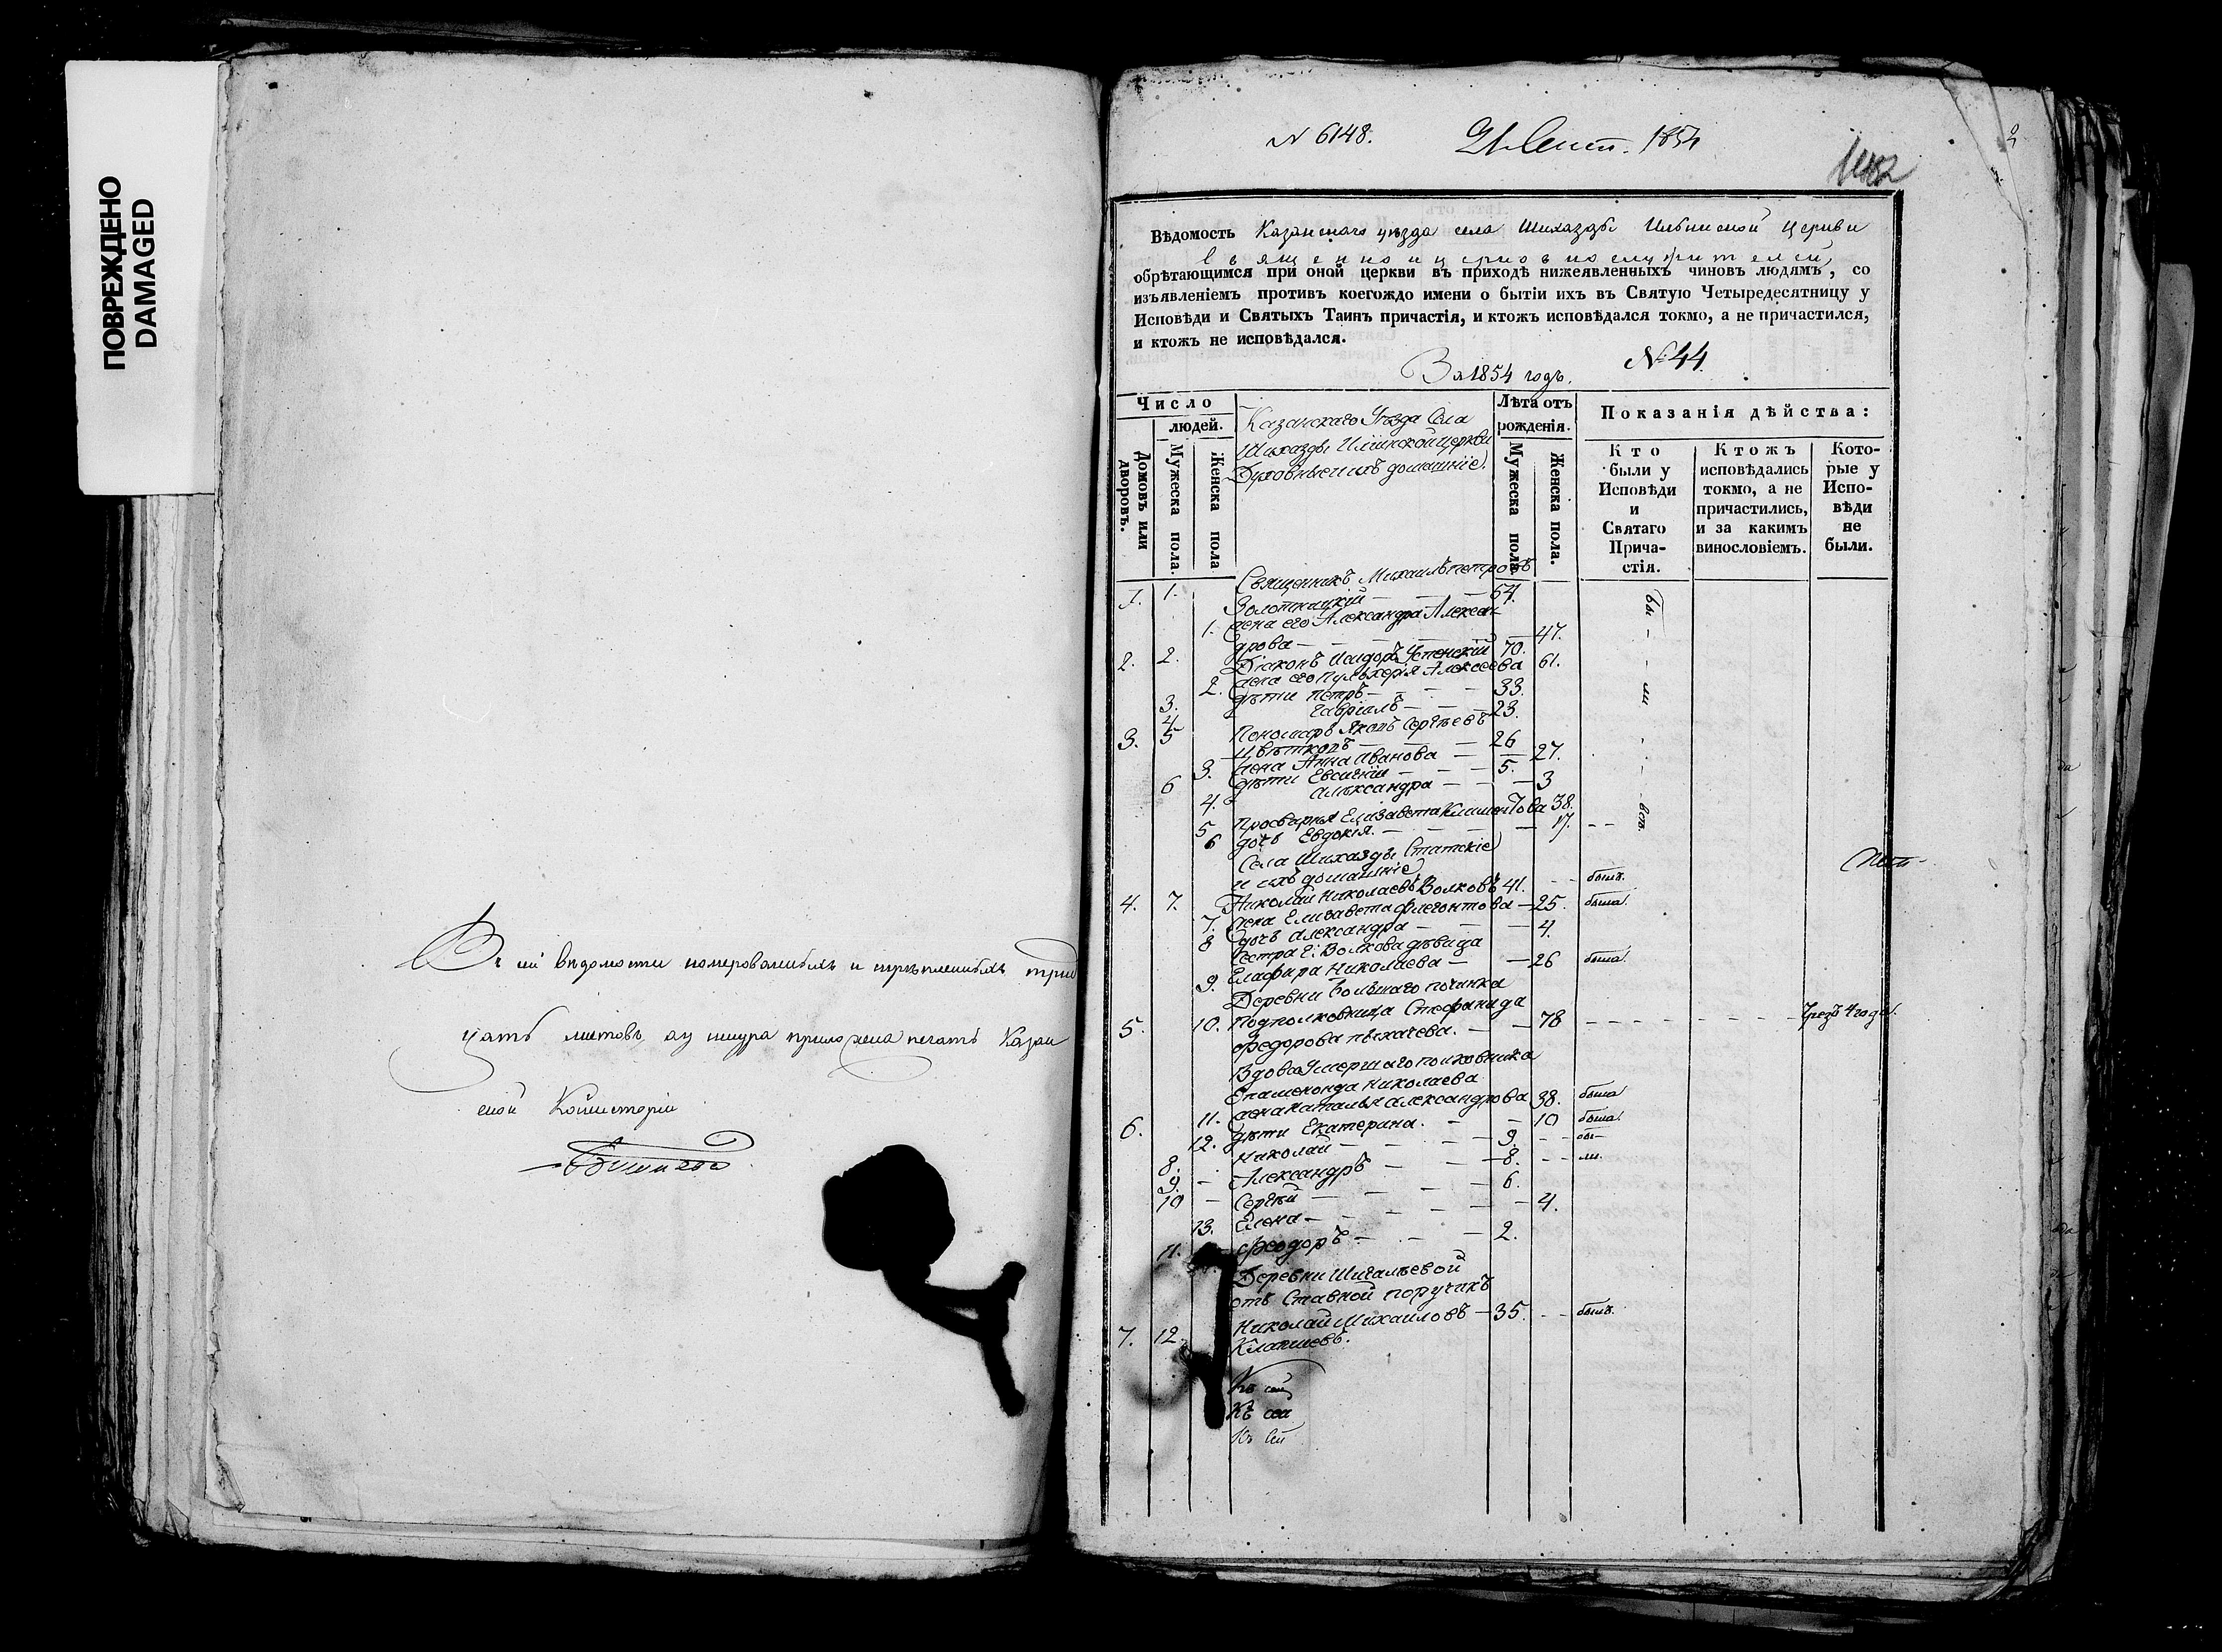 ПОВРЕЖДЕНО
DAMAGED
Въ сей вѣдомости номерованныхъ и скрѣпленныхъ трид
цать листовъ, а у шнура приложена печать Казан
ской Консисторіи
N 6148. 21 Сент. 1854
2
Вѣдомость Казанскаго уѣзда села Шигазды Ильинской Церкви
священно и церковно служителей,
обрѣтающимся при оной церкви въ приходѣ нижеявленныхъ чиновъ людямъ, со
изъявленіемъ противъ коегождо имени о бытіи ихъ въ Святую Четыредесятницу у
Исповѣди и Святыхъ Таинъ причастія, и ктожъ исповѣдался токмо, а не причастился,
и ктожъ не исповѣдался.
№ 44.
За 1854 годъ.
Число
людей.
Домовъ или дворовъ.
Мужеска пола.
Женска пола
Казанскаго Уѣзда Села
Шигазды Ильинской церкви
Духовные и ихъ домашніе.
Лѣта отъ
рожденія.
Мужеска пола
Женска пола.
Показанія дѣйства:
Кто
были у
Исповѣди
и
Святаго
Прича-
стія.
Ктожъ
исповѣдались
токмо, а не
причастились,
и за какимъ
винословіемъ.
Кото-
рые у
Испо-
вѣди
не
были.
1. 1. Священникъ Михаилъ Петровъ
Золотницкій — — 54.
1. жена его Александра Алексан
дрова — — — 47.
бы - - ли - - - всѣ.
2. 2. Діаконъ Исидоръ Успенскій 70.
2. жена его Пульхерія Алексеева 61.
3. дѣти Петръ — — — 33.
4 Гавріилъ — — 23.
3. 5 Пономарь Яковъ Сергѣевъ
Цвѣтковъ — — — 26
3. жена Анна Иванова — — 27.
6 дѣти Евсигній — — — 5.
4. Александра — — — 3
5 Просвирня Елизавета Климентова 38.
6 дочь Евдокія. — — — — 17. - -
Села Шигазды Статскіе
и ихъ домашніе
4. 7. Николай Николаевъ Волковъ 41. - - былъ.
7. жена Елизавета Флегонтова — 25. была.
8 дочь Александра — — — 4.
Сестра Е: Волкова дѣвица
9. Глафира Николаева — — 26 была.
Деревни Большаго починка
5. 10. Подполковница Стефанида
Федорова Пыхачева. — — 78 - - - - - - - - Чрезъ 4 года.
Вдова Умершаго полковника
Епаменонда Николаева
6. 11. жена Наталья Александрова 38. была
12. дѣти Екатерина. — — 10 была.
8. Николай — — — 9. - - бы-
9. — Александръ — — — 8. - - ли.
10 — Сергѣй — — — 6.
13. Елена — — — — 4.
11. Феодоръ — — — 2.
Деревни Шигалѣевой
отъ Ставной поручикъ
7. 12. Николай Михаиловъ — 35. - - былъ.
Къ сей